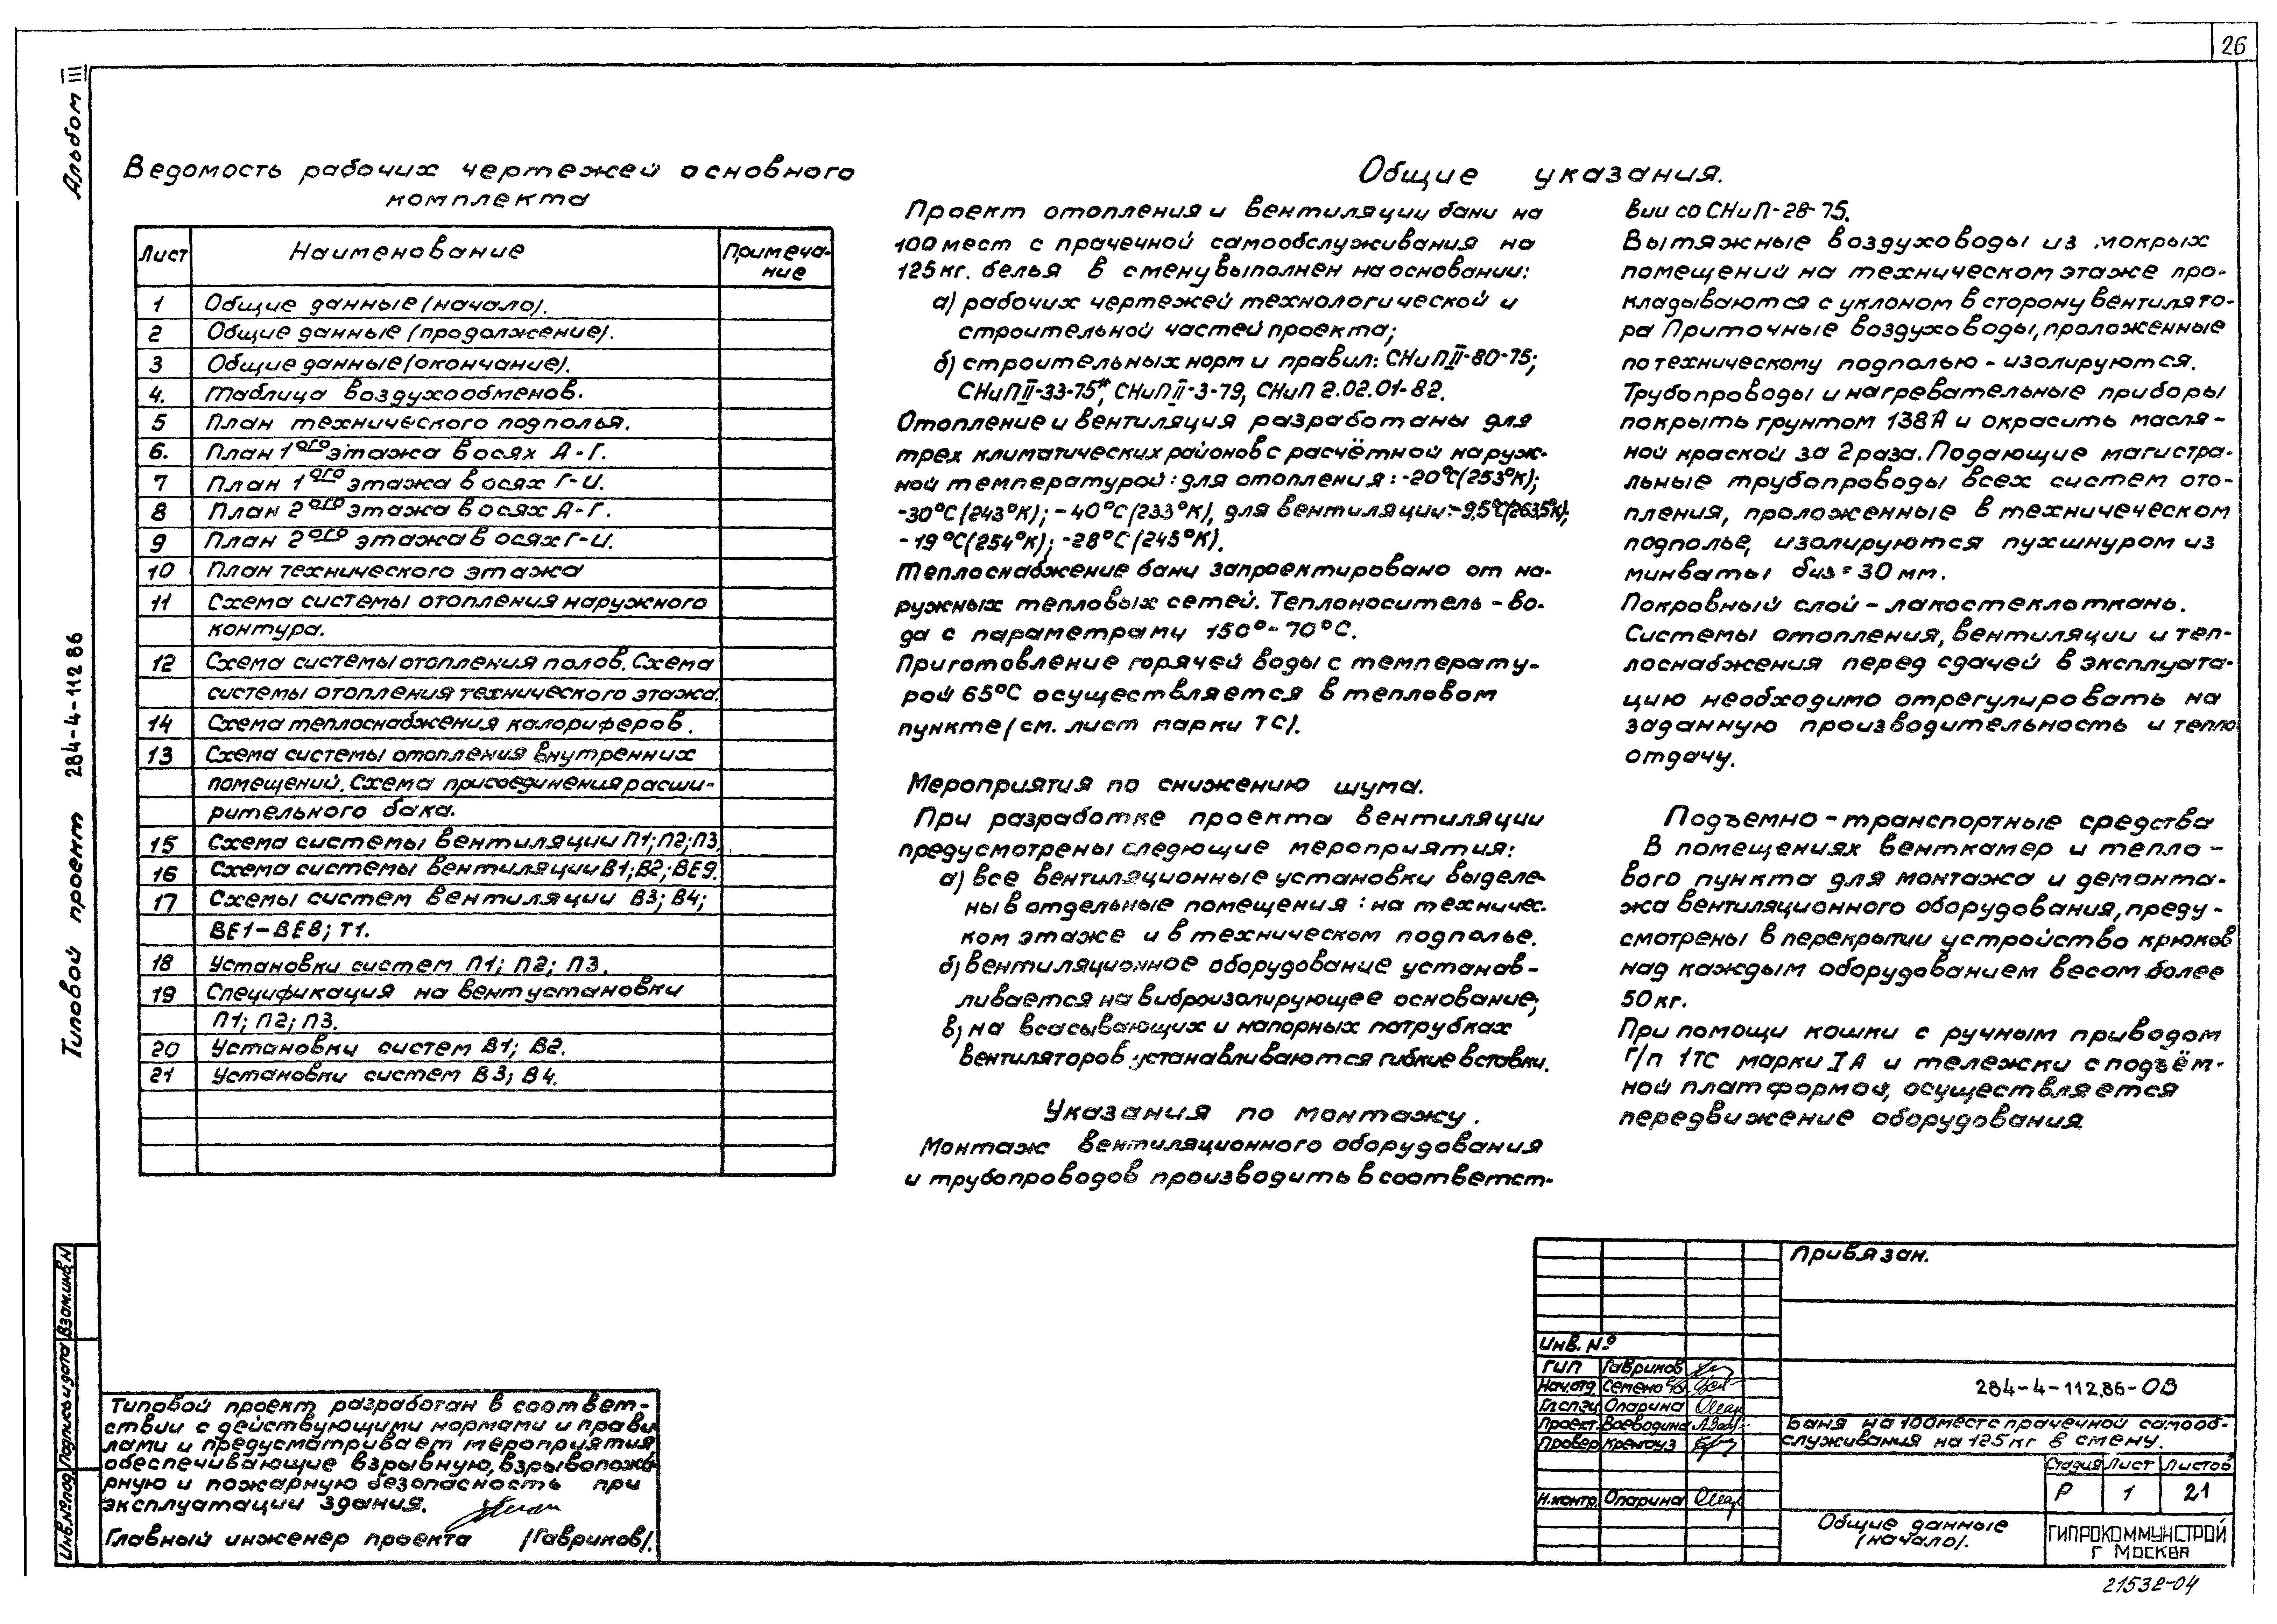 26
Альбом III
Типовой проект 284-4-112.86
Ведомость рабочих чертежей основного
комплекта
Лист Наименование Примеча-
ние
1 Общие данные (начало).
2 Общие данные (продолжение).
3 Общие данные (окончание).
4. Таблица воздухообменов.
5 План технического подполья.
6. План 1ого этажа в осях А-Г.
7 План 1ого этажа в осях Г-И.
8 План 2ого этажа в осях А-Г.
9 План 2ого этажа в осях Г-И.
10 План технического этажа
11 Схема системы отопления наружного
контура.
12 Схема системы отопления полов. Схема
системы отопления технического этажа.
14 Схема теплоснабжения калориферов.
13 Схема системы отопления внутренних
помещений. Схема присоединения расши-
рительного бака.
15 Схема системы вентиляции П1; П2; П3.
16 Схема системы вентиляции В1; В2; ВЕ9.
17 Схемы систем вентиляции В3; В4;
ВЕ1-ВЕ8; Т1.
18 Установки систем П1; П2; П3.
19 Спецификация на вентустановки
П1; П2; П3.
20 Установки систем В1; В2.
21 Установки систем В3; В4.
Общие указания.
Проект отопления и вентиляции бани на
100 мест с прачечной самообслуживания на
125 кг. белья в смену выполнен на основании:
а) рабочих чертежей технологической и
строительной частей проекта;
б) строительных норм и правил: СНиП II-80-75;
СНиП II-33-75*, СНиП II-3-79, СНиП 2.02.01-82.
Отопление и вентиляция разработаны для
трех климатических районов с расчётной наруж-
ной температурой: для отопления: -20°С(253°К);
-30°С(243°К); -40°С(233°К), для вентиляции:-9,5°С(263,5°К);
-19°С(254°К); -28°С(245°К).
Теплоснабжение бани запроектировано от на-
ружных тепловых сетей. Теплоноситель - во-
да с параметрами 150°-70°С.
Приготовление горячей воды с температу-
рой 65°С осуществляется в тепловом
пункте (см. лист марки ТС).
Мероприятия по снижению шума.
При разработке проекта вентиляции
предусмотрены следующие мероприятия:
а) все вентиляционные установки выделе-
ны в отдельные помещения: на техничес-
ком этаже и в техническом подполье.
б) вентиляционное оборудование устанав-
ливается на виброизолирующее основание;
в) на всасывающих и напорных патрубках
вентиляторов устанавливаются гибкие вставки.
Указания по монтажу.
Монтаж вентиляционного оборудования
и трубопроводов производить в соответст-
вии со СНиП-28-75.
Вытяжные воздуховоды из мокрых
помещений на техническом этаже про-
кладываются с уклоном в сторону вентилято-
ра Приточные воздуховоды, проложенные
по техническому подполью - изолируются.
Трубопроводы и нагревательные приборы
покрыть грунтом 138А и окрасить масля-
ной краской за 2 раза. Подающие магистра-
льные трубопроводы всех систем ото-
пления, проложенные в техничеческом
подполье, изолируются пухшнуром из
минваты биз = 30 мм.
Покровный слой - лакостеклоткань.
Системы отопления, вентиляции и теп-
лоснабжения перед сдачей в эксплуата-
цию необходимо отрегулировать на
заданную производительность и тепло
отдачу.
Подъемно-транспортные средства
В помещениях венткамер и тепло-
вого пункта для монтажа и демонта-
жа вентиляционного оборудования, преду-
смотрены в перекрытии устройство крюков
над каждым оборудованием весом более
50 кг.
При помощи кошки с ручным приводом
г/п 1ТС марки IА и тележки с подъём-
ной платформой, осуществляется
передвижение оборудования
Взам.инв.N
Подпись и дата
Инв.№под
Типовой проект разработан в соответ-
ствии с действующими нормами и прави-
лами и предусматривает мероприятия
обеспечивающие взрывную, взрывопожа-
рную и пожарную безопасность при
эксплуатации здания.
Главный инженер проекта (Гавриков).
Привязан.
Инв. №
ГИП Гавриков
Нач.отд Семенов
Гл.спец Опарина
Проект. Воеводина
Провер Кренауз
Н.контр. Опарина
284-4-112.86-ОВ
Баня на 100 мест с прачечной самооб-
служивания на 125 кг в смену.
Стадия Лист Листов
Р 1 21
Общие данные
(начало).
ГИПРОКОММУНСТРОЙ
Г МОСКВА
21532-04